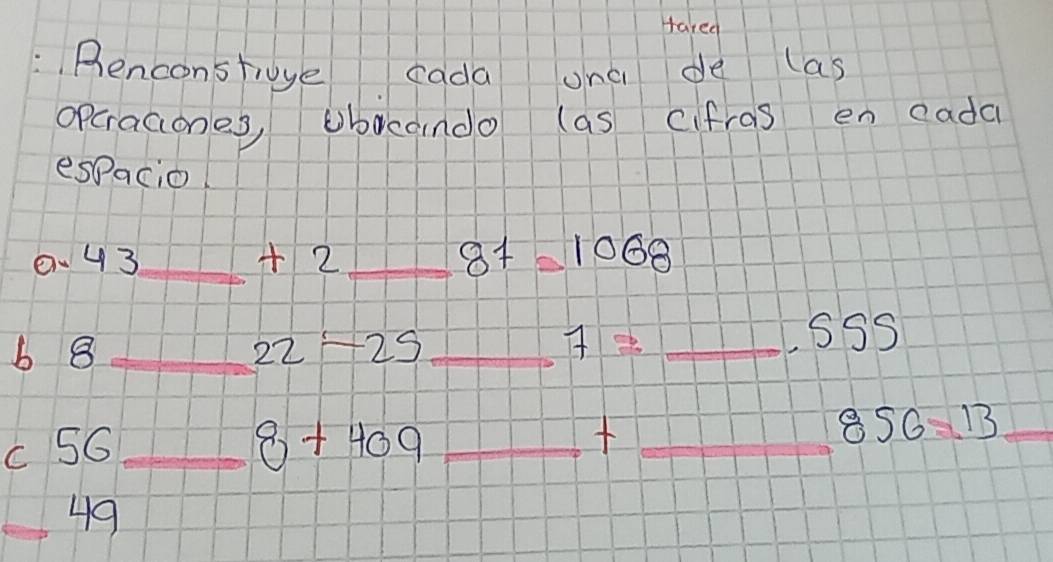 tarea
: Renconstruye cada una de las
operaciones, ubicando las cifras en cada
espacio.
a. 43____ + 2____87 = 1068
b 8____22 - 25____7 = ____.555
c 56____8 + 409____ + ____856 = 13__
__49